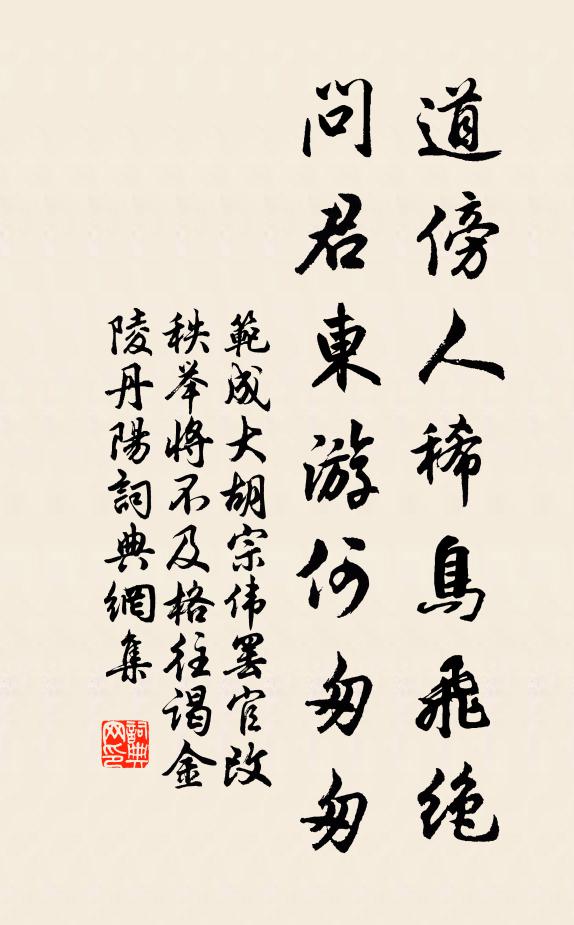 道傍人稀鳥飛绝
問君東游何匆匆
範成大胡宗伟罢官改
秩举将不及格往谒金
陵丹陽詞典網集
詞典网印